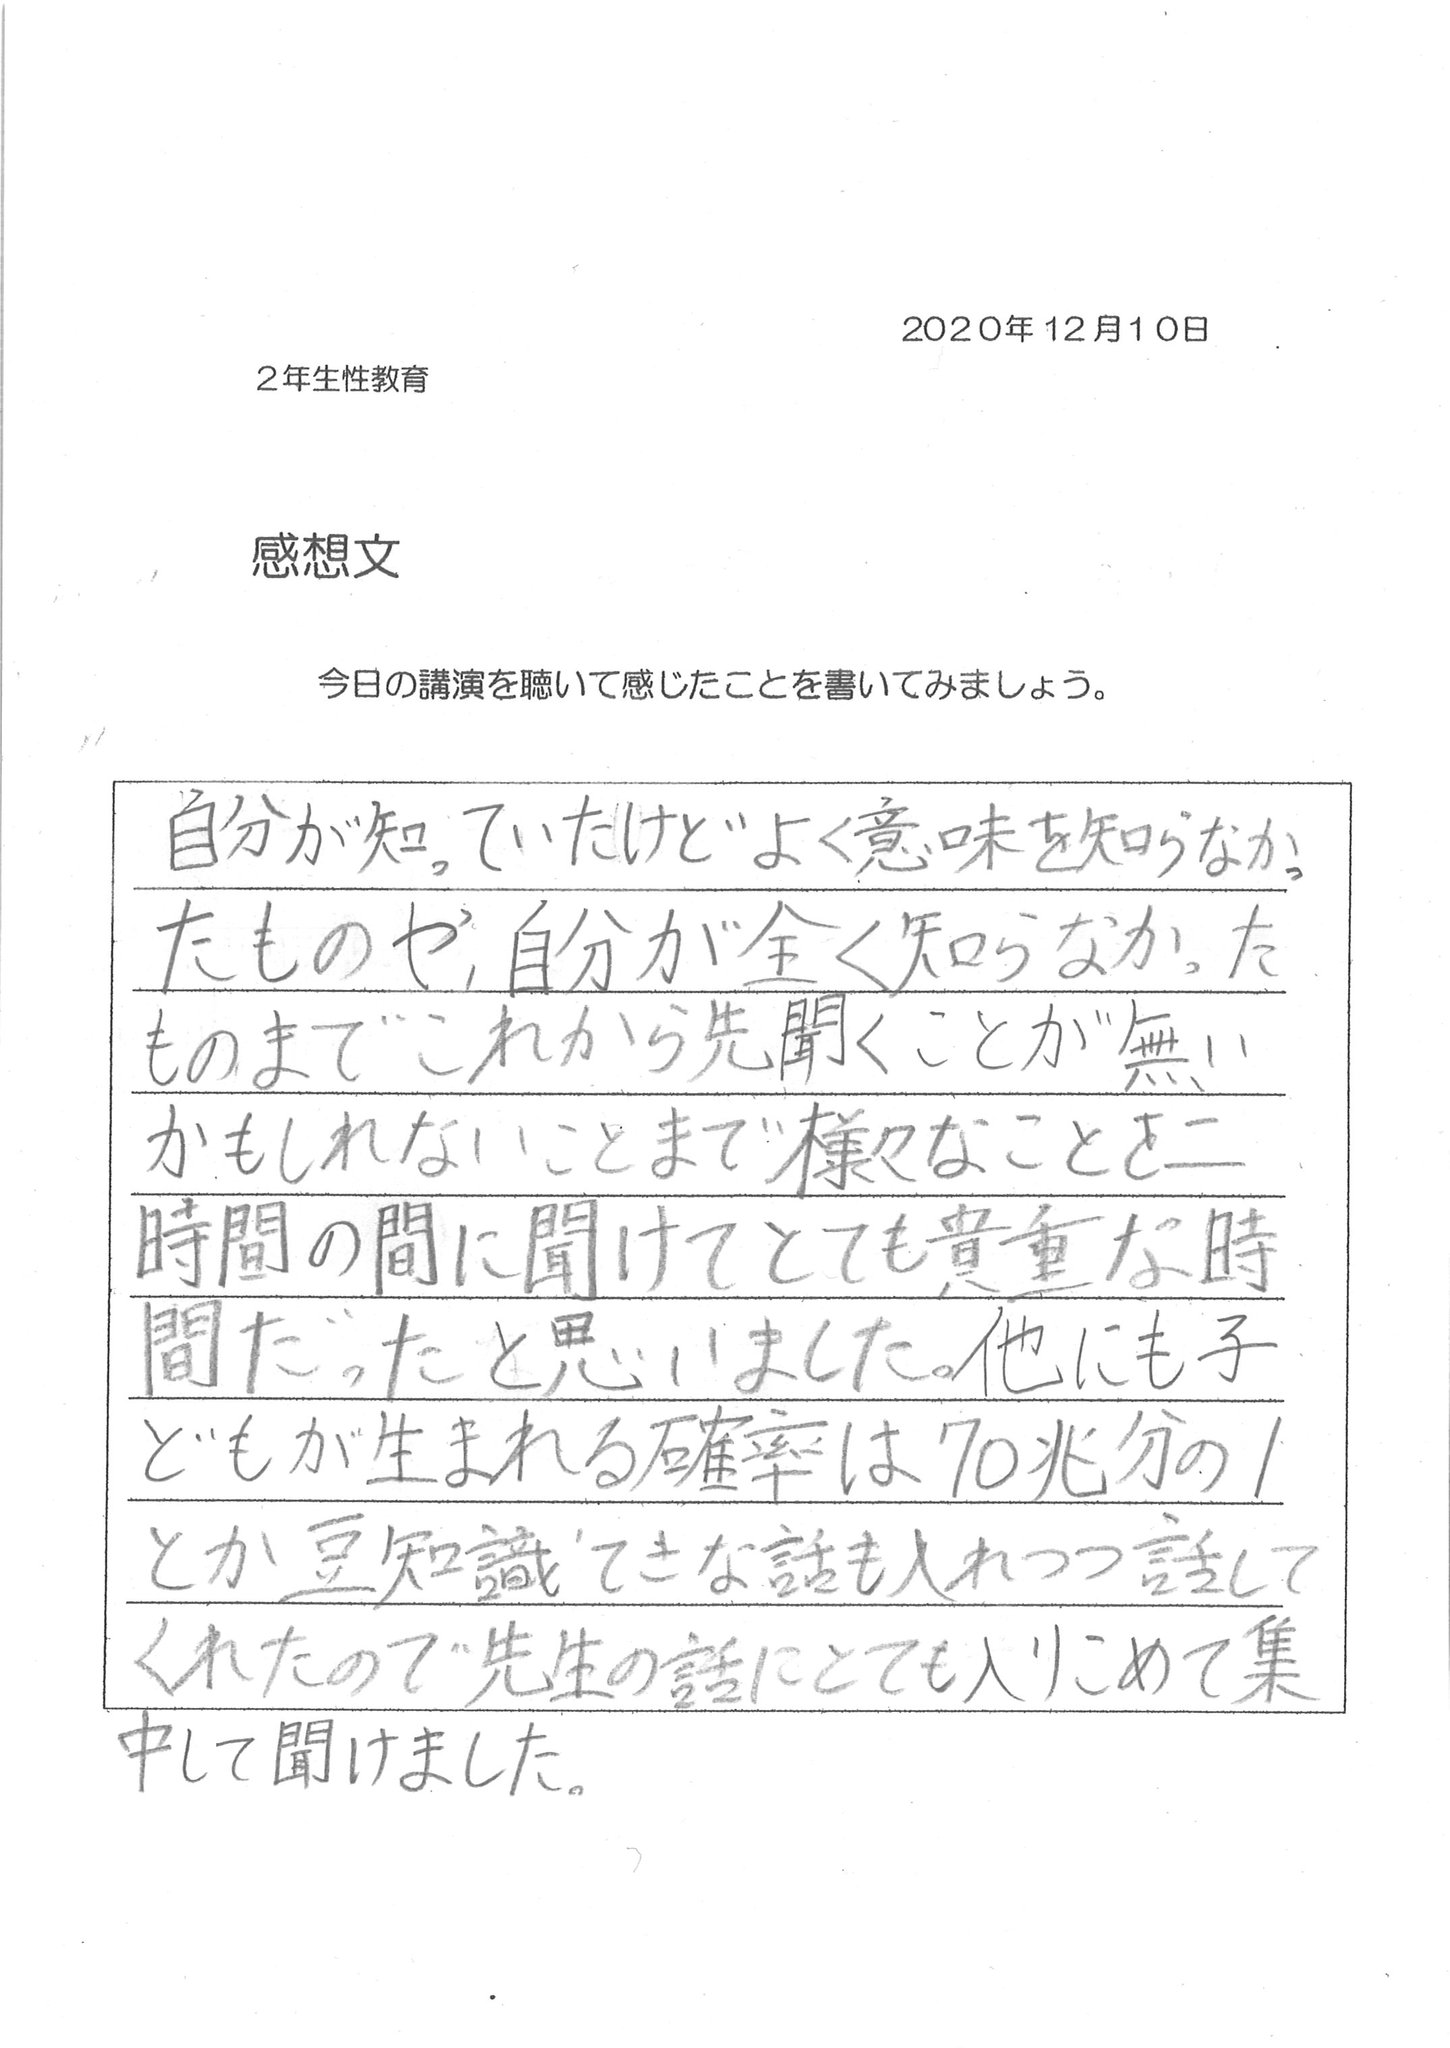 2020年12月10日
2年生性教育
感想文
今日の講演を聴いて感じたことを書いてみましょう。
自分が知っていたけどよく意味を知らなかっ
たものや,自分が全く知らなかった
ものまでこれから先聞くことが無い
かもしれないことまで様々なことを二
時間の間に聞けてとても貴重な時
間だったと思いました。他にも子
どもが生まれる確率は70兆分の1
とか豆知識てきな話も入れつつ話して
くれたので先生の話にとても入りこめて集
中して聞けました。